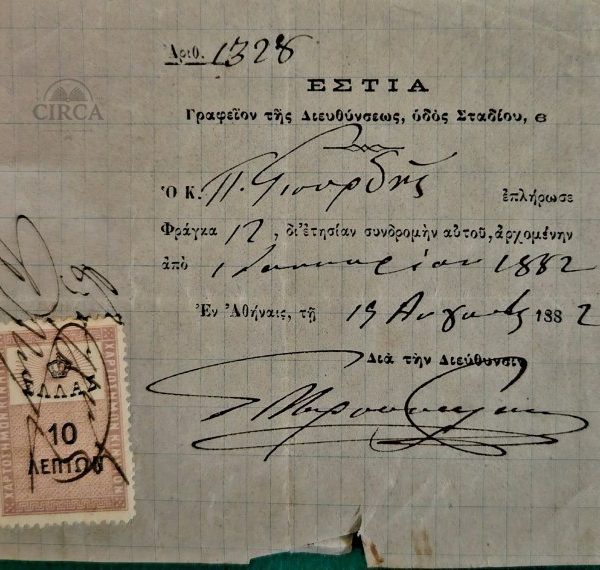 Ἀριθ. 1328
CIRCA
ΕΣΤΙΑ
Γραφεῖον τῆς Διευθύνσεως, ὁδὸς Σταδίου, 6
Ὁ Κ. Π. ἐπλήρωσε
Φράγκα 12, δι' ἐτησίαν συνδρομὴν αὐτοῦ, ἀρχομένην
ἀπὸ 1 Ιανουαρίου 1882
Ἐν Ἀθήναις, τῇ 19 1882
Διὰ τὴν Διεύθυνσιν
ΕΛΛΑΣ
10
ΛΕΠΤΩΝ
ΧΑΡΤΟΣΗΜΟΝ ΚΙΝΗΤΟΝ